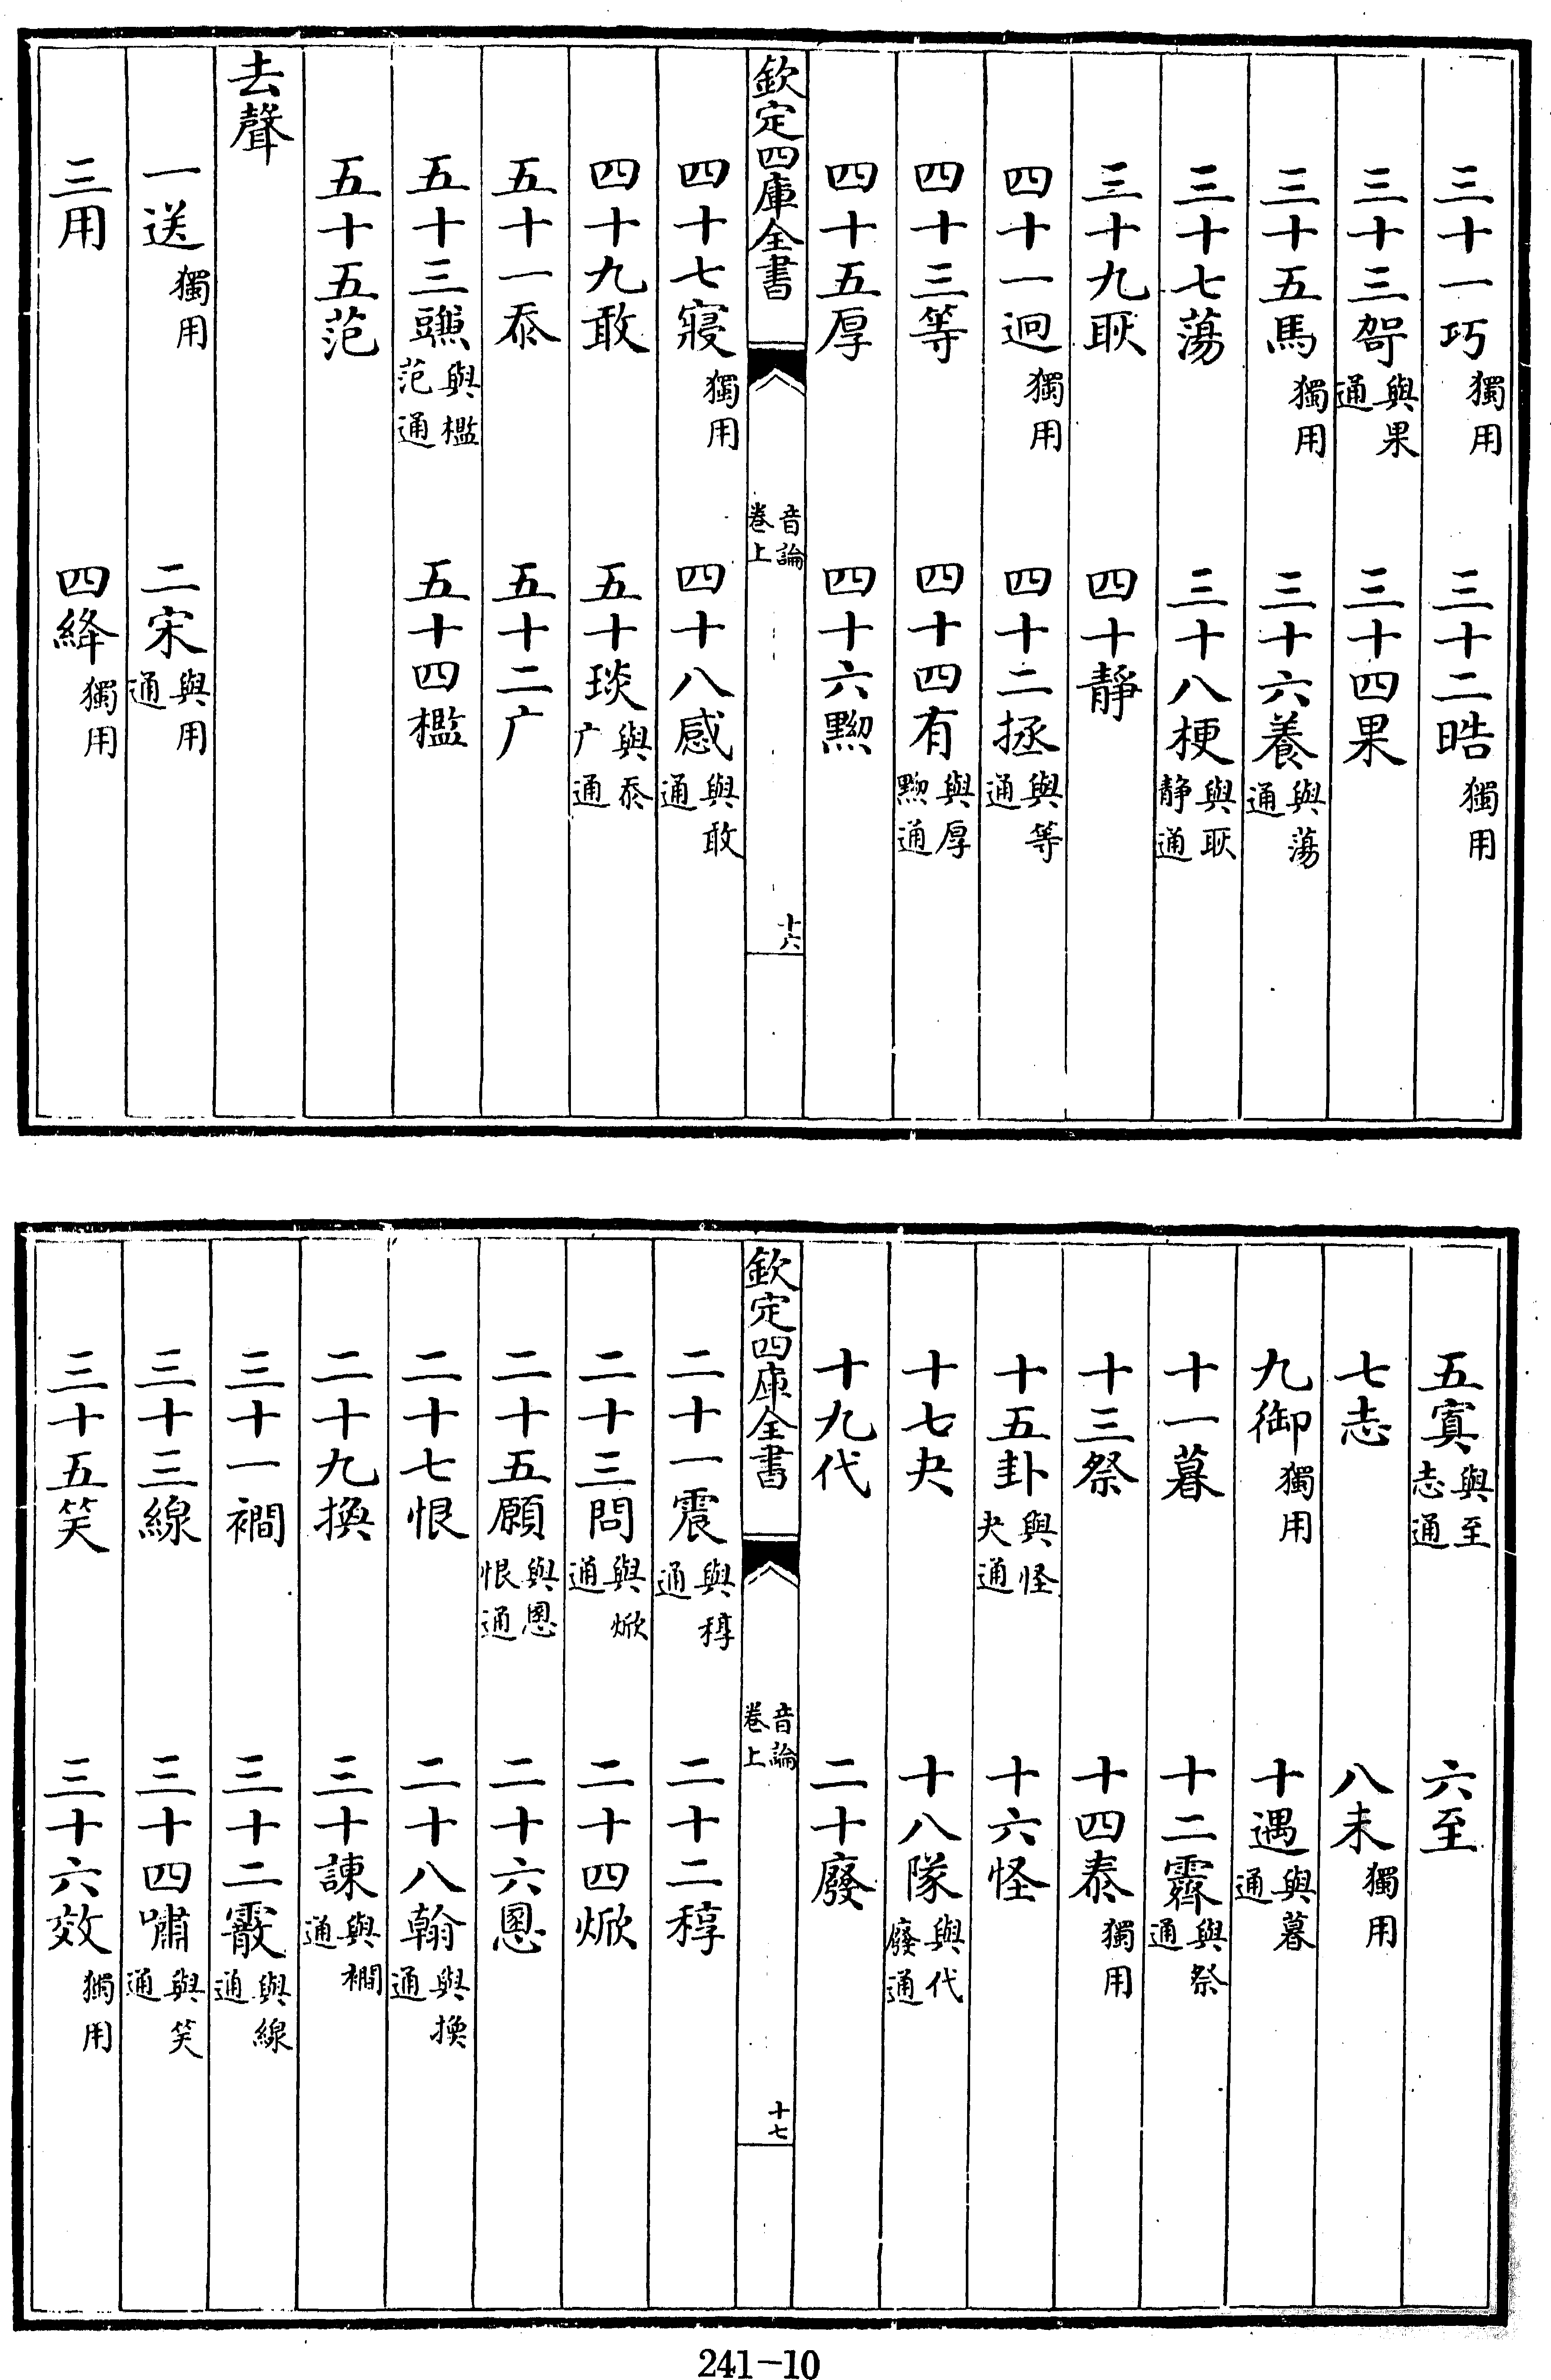 三十一巧獨用 三十二晧獨用
三十三哿與果通 三十四果
三十五馬獨用 三十六養與蕩通
三十七蕩 三十八梗與耿靜通
三十九耿 四十靜
四十一迥獨用 四十二拯與等通
四十三等 四十四有與厚黝通
四十五厚 四十六黝
欽定四庫全書 音論卷上 十六
四十七寢獨用 四十八感與敢通
四十九敢 五十琰與忝广通
五十一忝 五十二广
五十三豏與檻范通 五十四檻
五十五范
去聲
一送獨用 二宋與用通
三用 四絳獨用
五寘與至志通 六至
七志 八未獨用
九御獨用 十遇與暮通
十一暮 十二霽與祭通
十三祭 十四泰獨用
十五卦與怪夬通 十六怪
十七夬 十八隊與代廢通
十九代 二十廢
欽定四庫全書 音論卷上 十七
二十一震與稕通 二十二稕
二十三問與焮通 二十四焮
二十五願與慁恨通 二十六慁
二十七恨 二十八翰與換通
二十九換 三十諫與襉通
三十一襉 三十二霰與線通
三十三線 三十四嘯與笑通
三十五笑 三十六效獨用
241-10